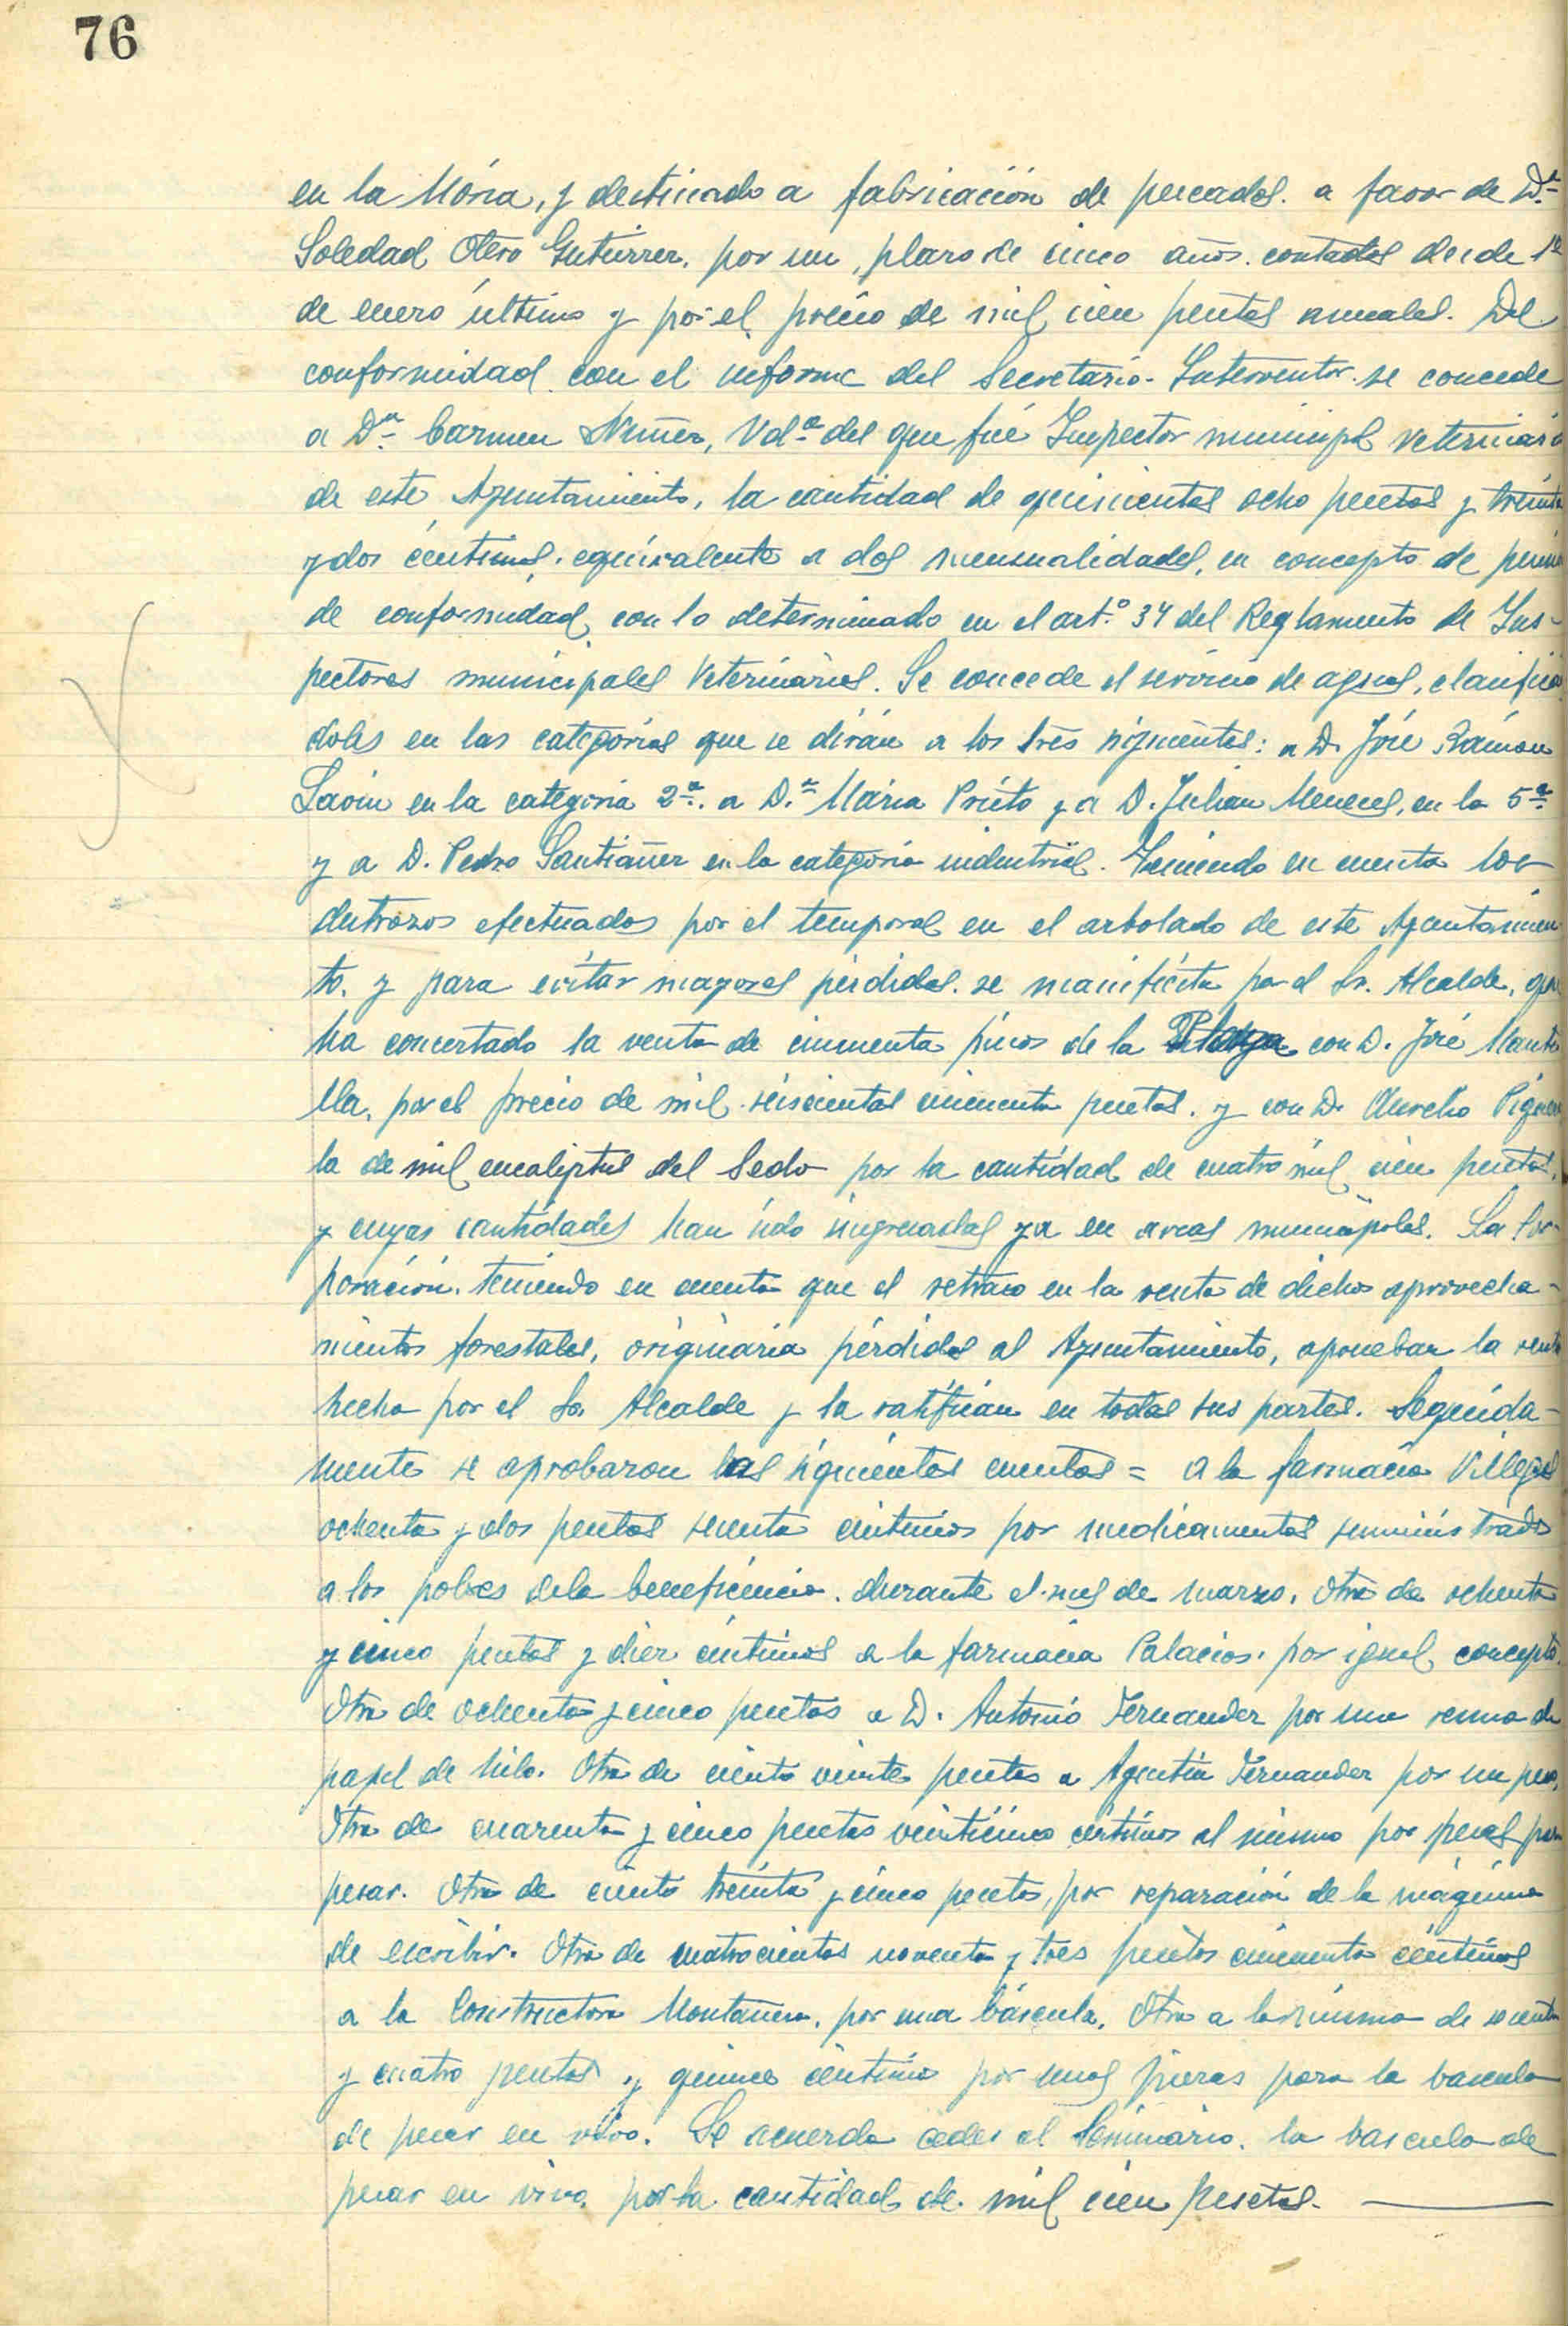 76
en la Moria, y destinado a fabricación de pescados. a favor de D.ª
Soledad Otero Gutierrez, por un plazo de cinco años. contados desde 1º
de enero último y por el precio de mil cien pesetas anuales. De
conformidad con el informe del Secretario-Interventor se concede
a Dª Carmen Nuñez, Vdª del que fué Inspector municipal Veterinario
de este Ayuntamiento, la cantidad de quinientas ocho pesetas y treinta
y dos centimos, equivalente a dos mensualidades, en concepto de
de conformidad con lo determinado en el artº 34 del Reglamento de Ins-
pectores municipales Veterinarios. Se concede el servicio de aguas, clasificán
dolos en las categorias que se dirán a los tres siguientes: a D. José Ramon
Lavin en la categoria 2ª. a D.ª Maria Prieto y a D. Julian Meneses, en la 5ª
y a D. Pedro Santiañez en la categoria industrial. Teniendo en cuenta los
destrozos efectuados por el temporal en el arbolado de este Ayuntamien
to. y para evitar mayores pérdidas. se manifiesta por el Sr. Alcalde, que
ha concertado la venta de cincuenta pinos de la con D. José Manti
lla, por el precio de mil seiscientas cincuenta pesetas. y con D. Aurelio
la de mil eucaliptus del Sedo por la cantidad de cuatro mil cien pesetas.
y cuyas cantidades han sido ingresadas ya en arcas municipales. La Cor-
poración. teniendo en cuenta que el retraso en la venta de dichos aprovecha-
mientos forestales, originaria pérdidas al Ayuntamiento, aprueban la venta
hecha por el Sr. Alcalde y la ratifican en todas sus partes. Seguida-
mente se aprobaron las siguientes cuentas = a la farmacia Villegas
ochenta y dos pesetas sesenta centimos por medicamentos suministrados
a los pobres dela beneficencia. durante el mes de marzo. Otra de ochenta
y cinco pesetas y diez centimos a la farmacia Palacios. por igual concepto.
Otra de ochenta y cinco pesetas a D. Antonio Fernandez por una resma de
papel de hilo. Otra de ciento veinte pesetas a Agustin Fernandez por un peso,
Otra de cuarenta y cinco pesetas veinticinco centimos al mismo por pesas para
pesar. Otra de ciento treinta y cinco pesetas, por reparación de la máquina
de escribir. Otra de cuatrocientas noventa y tres pesetas cincuenta centimos
a la Constructora Montañesa, por una báscula. Otra a la misma de sesenta
y cuatro pesetas y quince centimos por unas piezas para la bascula
de pesar en vivo. Se acuerda ceder al Seminario. la bascula de
pesar en vivo, por la cantidad de mil cien pesetas.